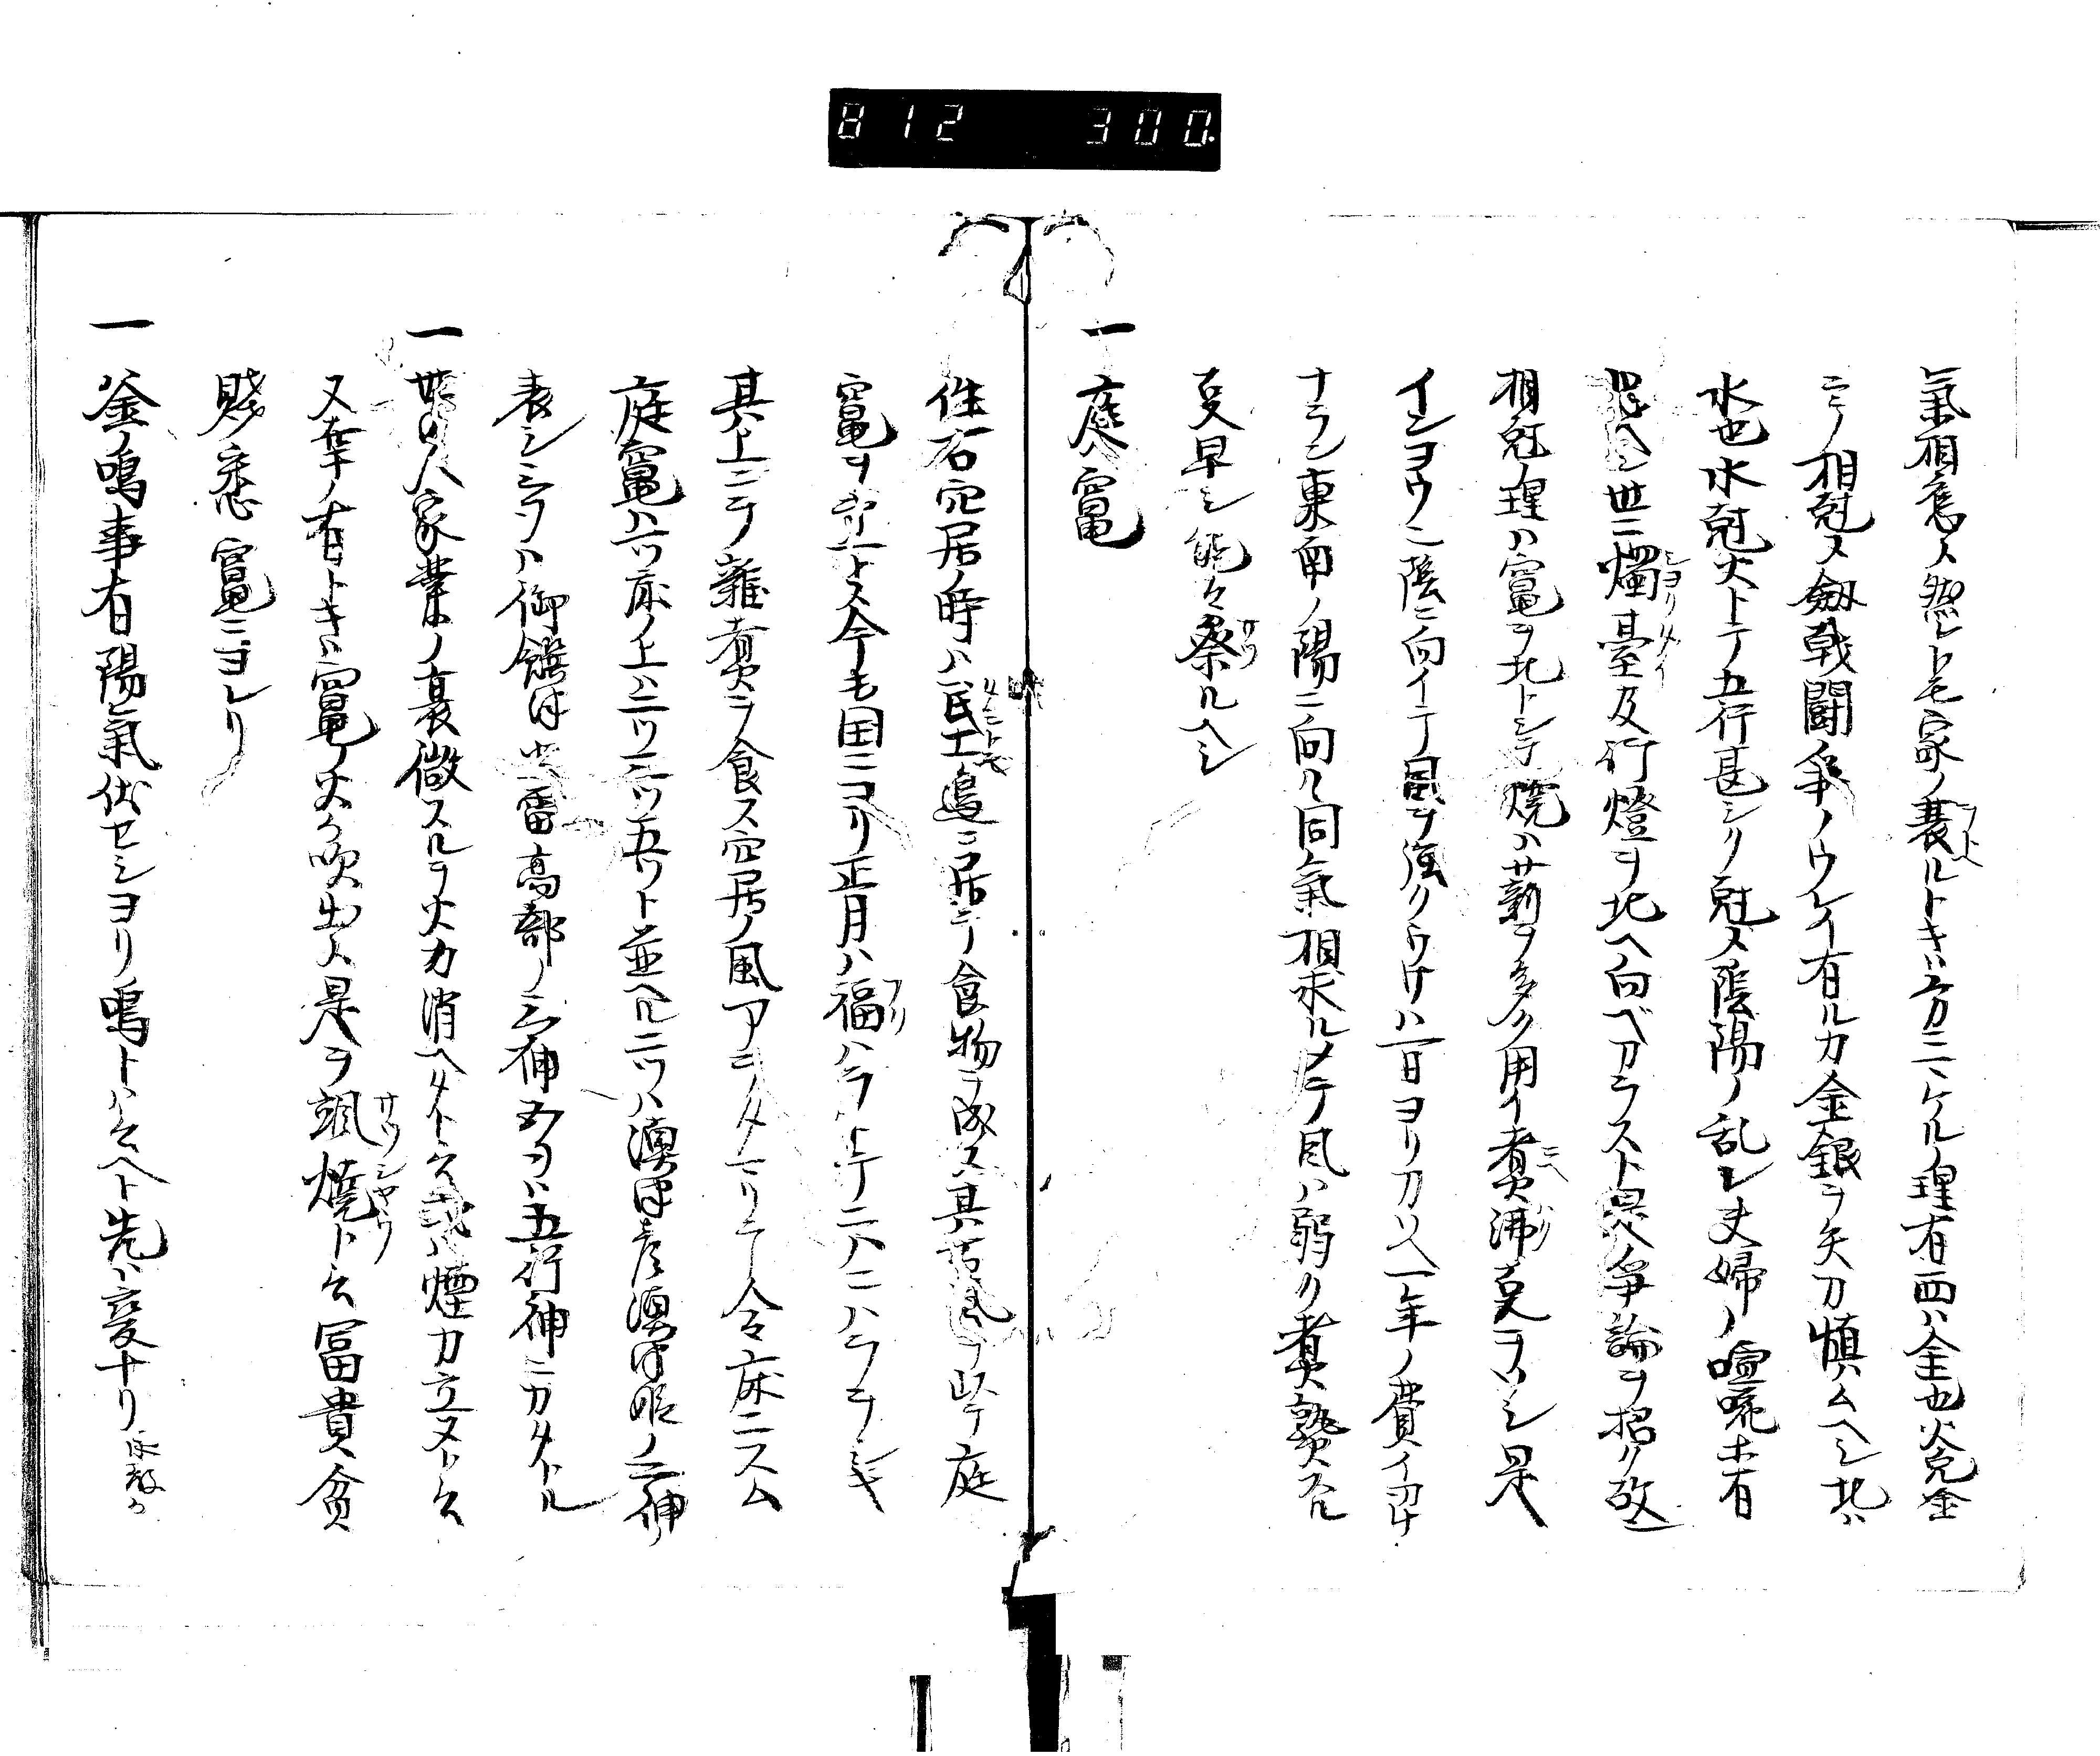 812 300.
氣相應ス然レトモ家ノ衰ルトキハ五カニケル理有西ハ金也火克金
ニテ相尅ス劔戟闘爭ノウレイ有ルカ金銀ヲ矢刀慎ムヘシ北ハ
水也水尅火トテ五行甚シク尅ス陰陽ノ乱レ夫婦ノ喧𠵅木有
世ニ燭臺及行燈ヲ北ヘ向ベカラスト是爭論ヲ招ク故
相尅ノ理ハ竈ヲ北トシテ焼ハ薪ヲ多ク用イ煮沸克ヲソシ是
インヨウニ陰ニ向イテ風ヲ強クウケハ一日ヨリカソヘ一年ノ費イ
ナラン東南ノ陽ニ向ハ同氣相求ルメテ風ハ弱ク煮熟スル
克早シ能々察ルヘシ
一 庭竈
往古穴居ノ時ハ民土邊ニ居テ食物ヲ成ス其古風ヲ以テ庭
竈ヲ立トス今モ国ニヨリ正月ハ福ハラトテニハニハラヲシキ
其上ニテ雜煮ヲ食ス穴居ノ風アラタマリテ今床ニスム
庭竈ハ六ツ床ノ上ハ二ツ三ツ五ツト並ヘル二ツハ澳津彦澳津姫ノ二神
表シ三ツハ御饌津 雷高部ノ三神五ツハ五行神ニカタトル
一 世ノ人家業ノ衰微スルヲ火カ消ヘタト云或ハ煙カ立ヌト云
又幸ノ有トキハ竈ノ火ガ吹出ス是ヲ颯焼ト云冨貴貧
賤悉竈ニヨレリ
一 釜ノ鳴事有陽氣伏セシヨリ鳴トハ云ヘト先ハ變ナリ